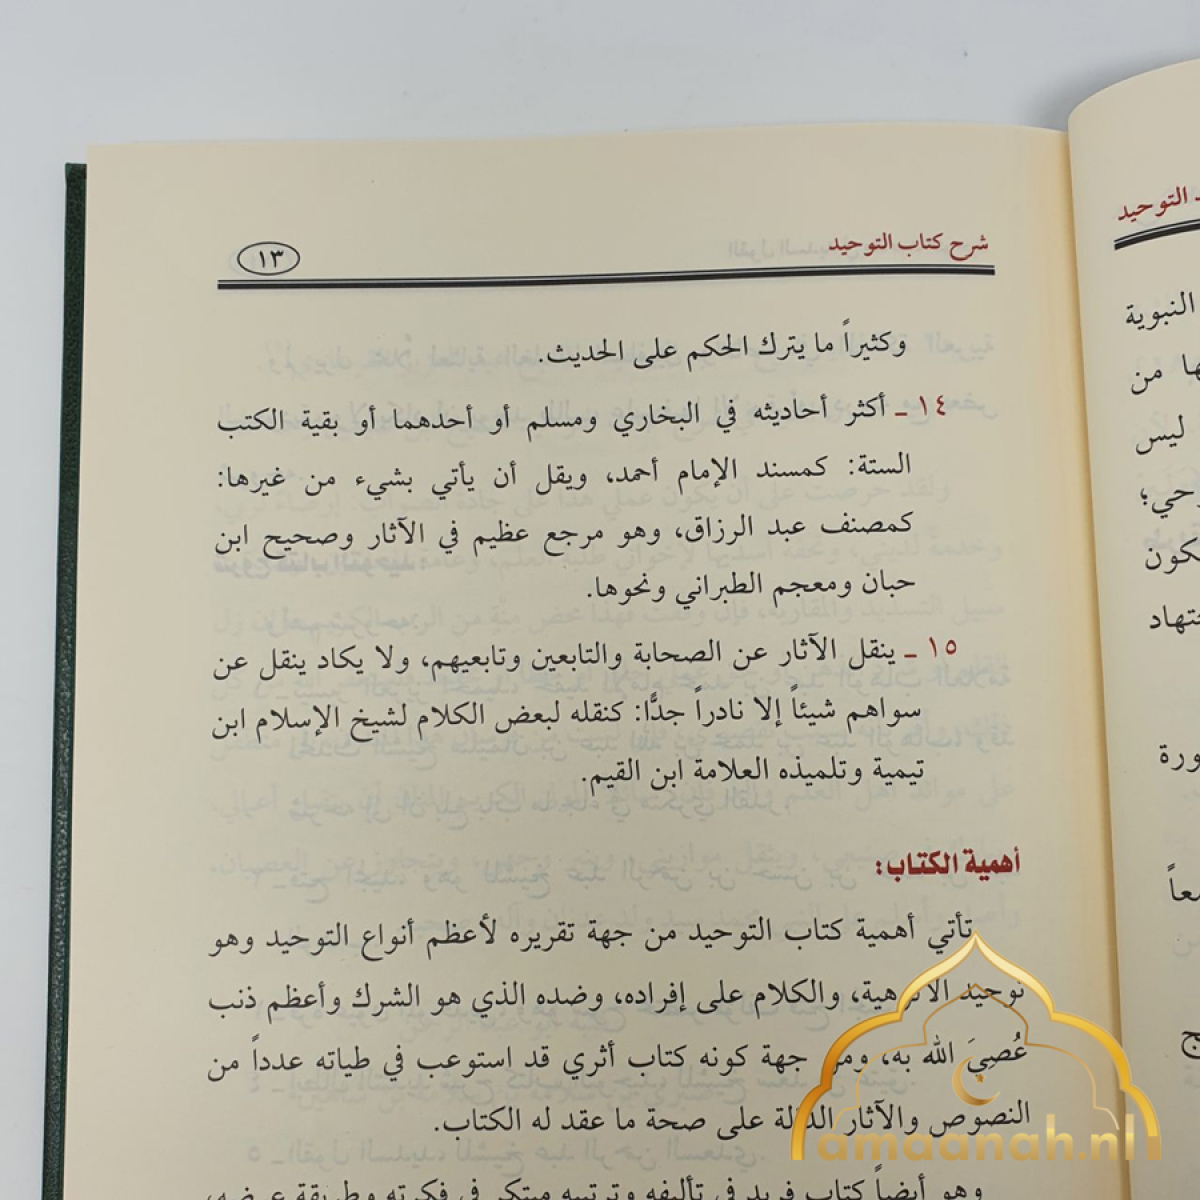 شرح كتاب التوحيد
١٣
وكثيراً ما يترك الحكم على الحديث.
١٤ ـ أكثر أحاديثه في البخاري ومسلم أو أحدهما أو بقية الكتب
الستة: كمسند الإمام أحمد، ويقل أن يأتي بشيء من غيرها:
كمصنف عبد الرزاق، وهو مرجع عظيم في الآثار وصحيح ابن
حبان ومعجم الطبراني ونحوها.
١٥ ـ ينقل الآثار عن الصحابة والتابعين وتابعيهم، ولا يكاد ينقل عن
سواهم شيئاً إلا نادراً جدًّا: كنقله لبعض الكلام لشيخ الإسلام ابن
تيمية وتلميذه العلامة ابن القيم.
أهمية الكتاب:
تأتي أهمية كتاب التوحيد من جهة تقريره لأعظم أنواع التوحيد وهو
توحيد الألوهية، والكلام على إفراده، وضده الذي هو الشرك وأعظم ذنب
عُصِيَ الله به، ومن جهة كونه كتاب أثري قد استوعب في طياته عدداً من
النصوص والآثار الدالة على صحة ما عقد له الكتاب.
وهو أيضاً كتاب فريد في تأليفه وترتيبه مبتكر في فكرته وطريقة عرضه،
التوحيد
النبوية
من
ليس
amaanah.nl